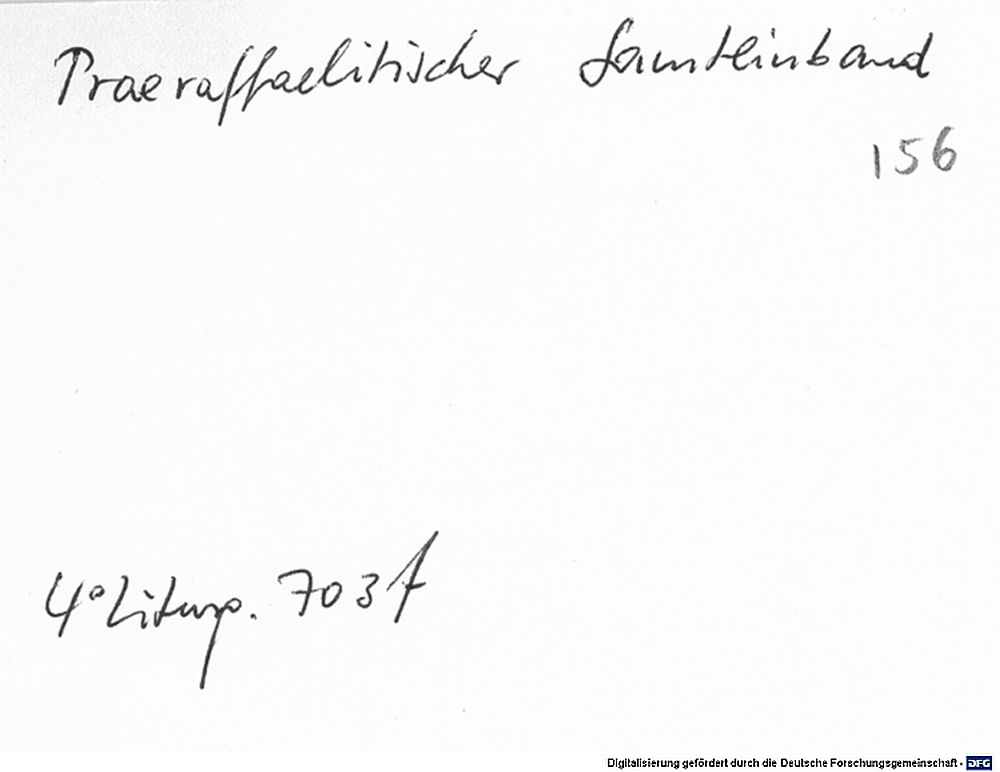 Praeraffaelitischer Samteinband
156
4° Liturg. 703 f
Digitalisierung gefördert durch die Deutsche Forschungsgemeinschaft - DFG